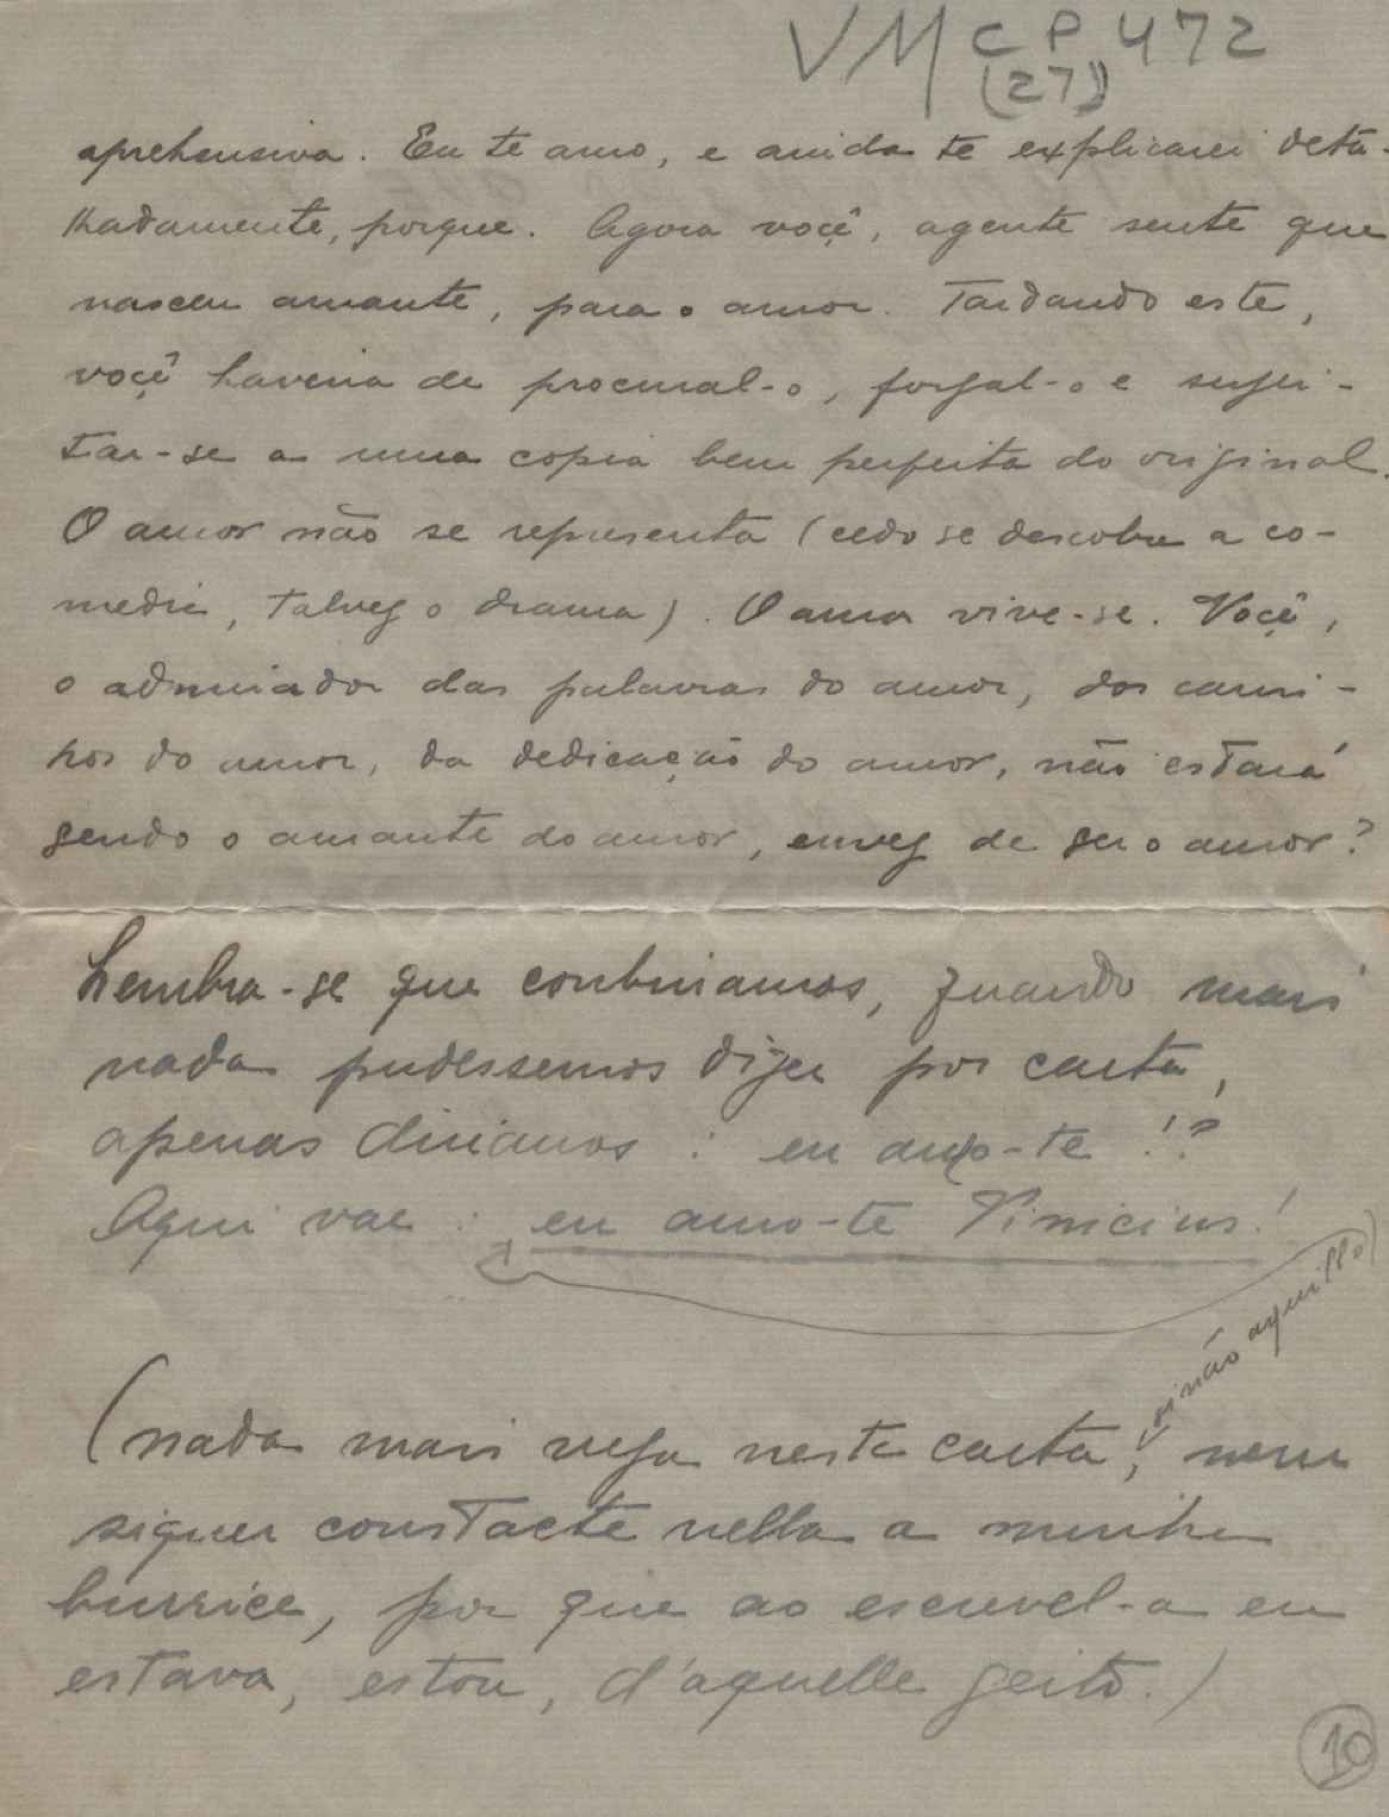 VM CP 472
(27)
aprehensiva. Eu te amo, e ainda te explicarei deta-
lhadamente, porque. Agora você, agente sente que
nasceu amante, para o amor. Tardando este,
você haveria de procural-o, forjal-o e sujei-
tar-se a uma copia bem perfeita do original.
O amor não se representa (cedo se descobre a co-
media, talvez o drama). O amor vive-se. Você,
o admirador das palavras do amor, dos cari-
nhos do amor, da dedicação do amor, não estará
sendo o amante do amor, envez de ser o amor?
Lembra-se que combinamos, quando mais
nada pudessemos dizer por carta,
apenas diriamos: eu amo-te!?
Aqui vae: eu amo-te Vinicius!
(nada mais veja nesta carta, sinão aquillo, nem
siquer constacte nella a minha
burrice, por que ao escrevel-a eu
estava, estou, d'aquelle geito.)
10